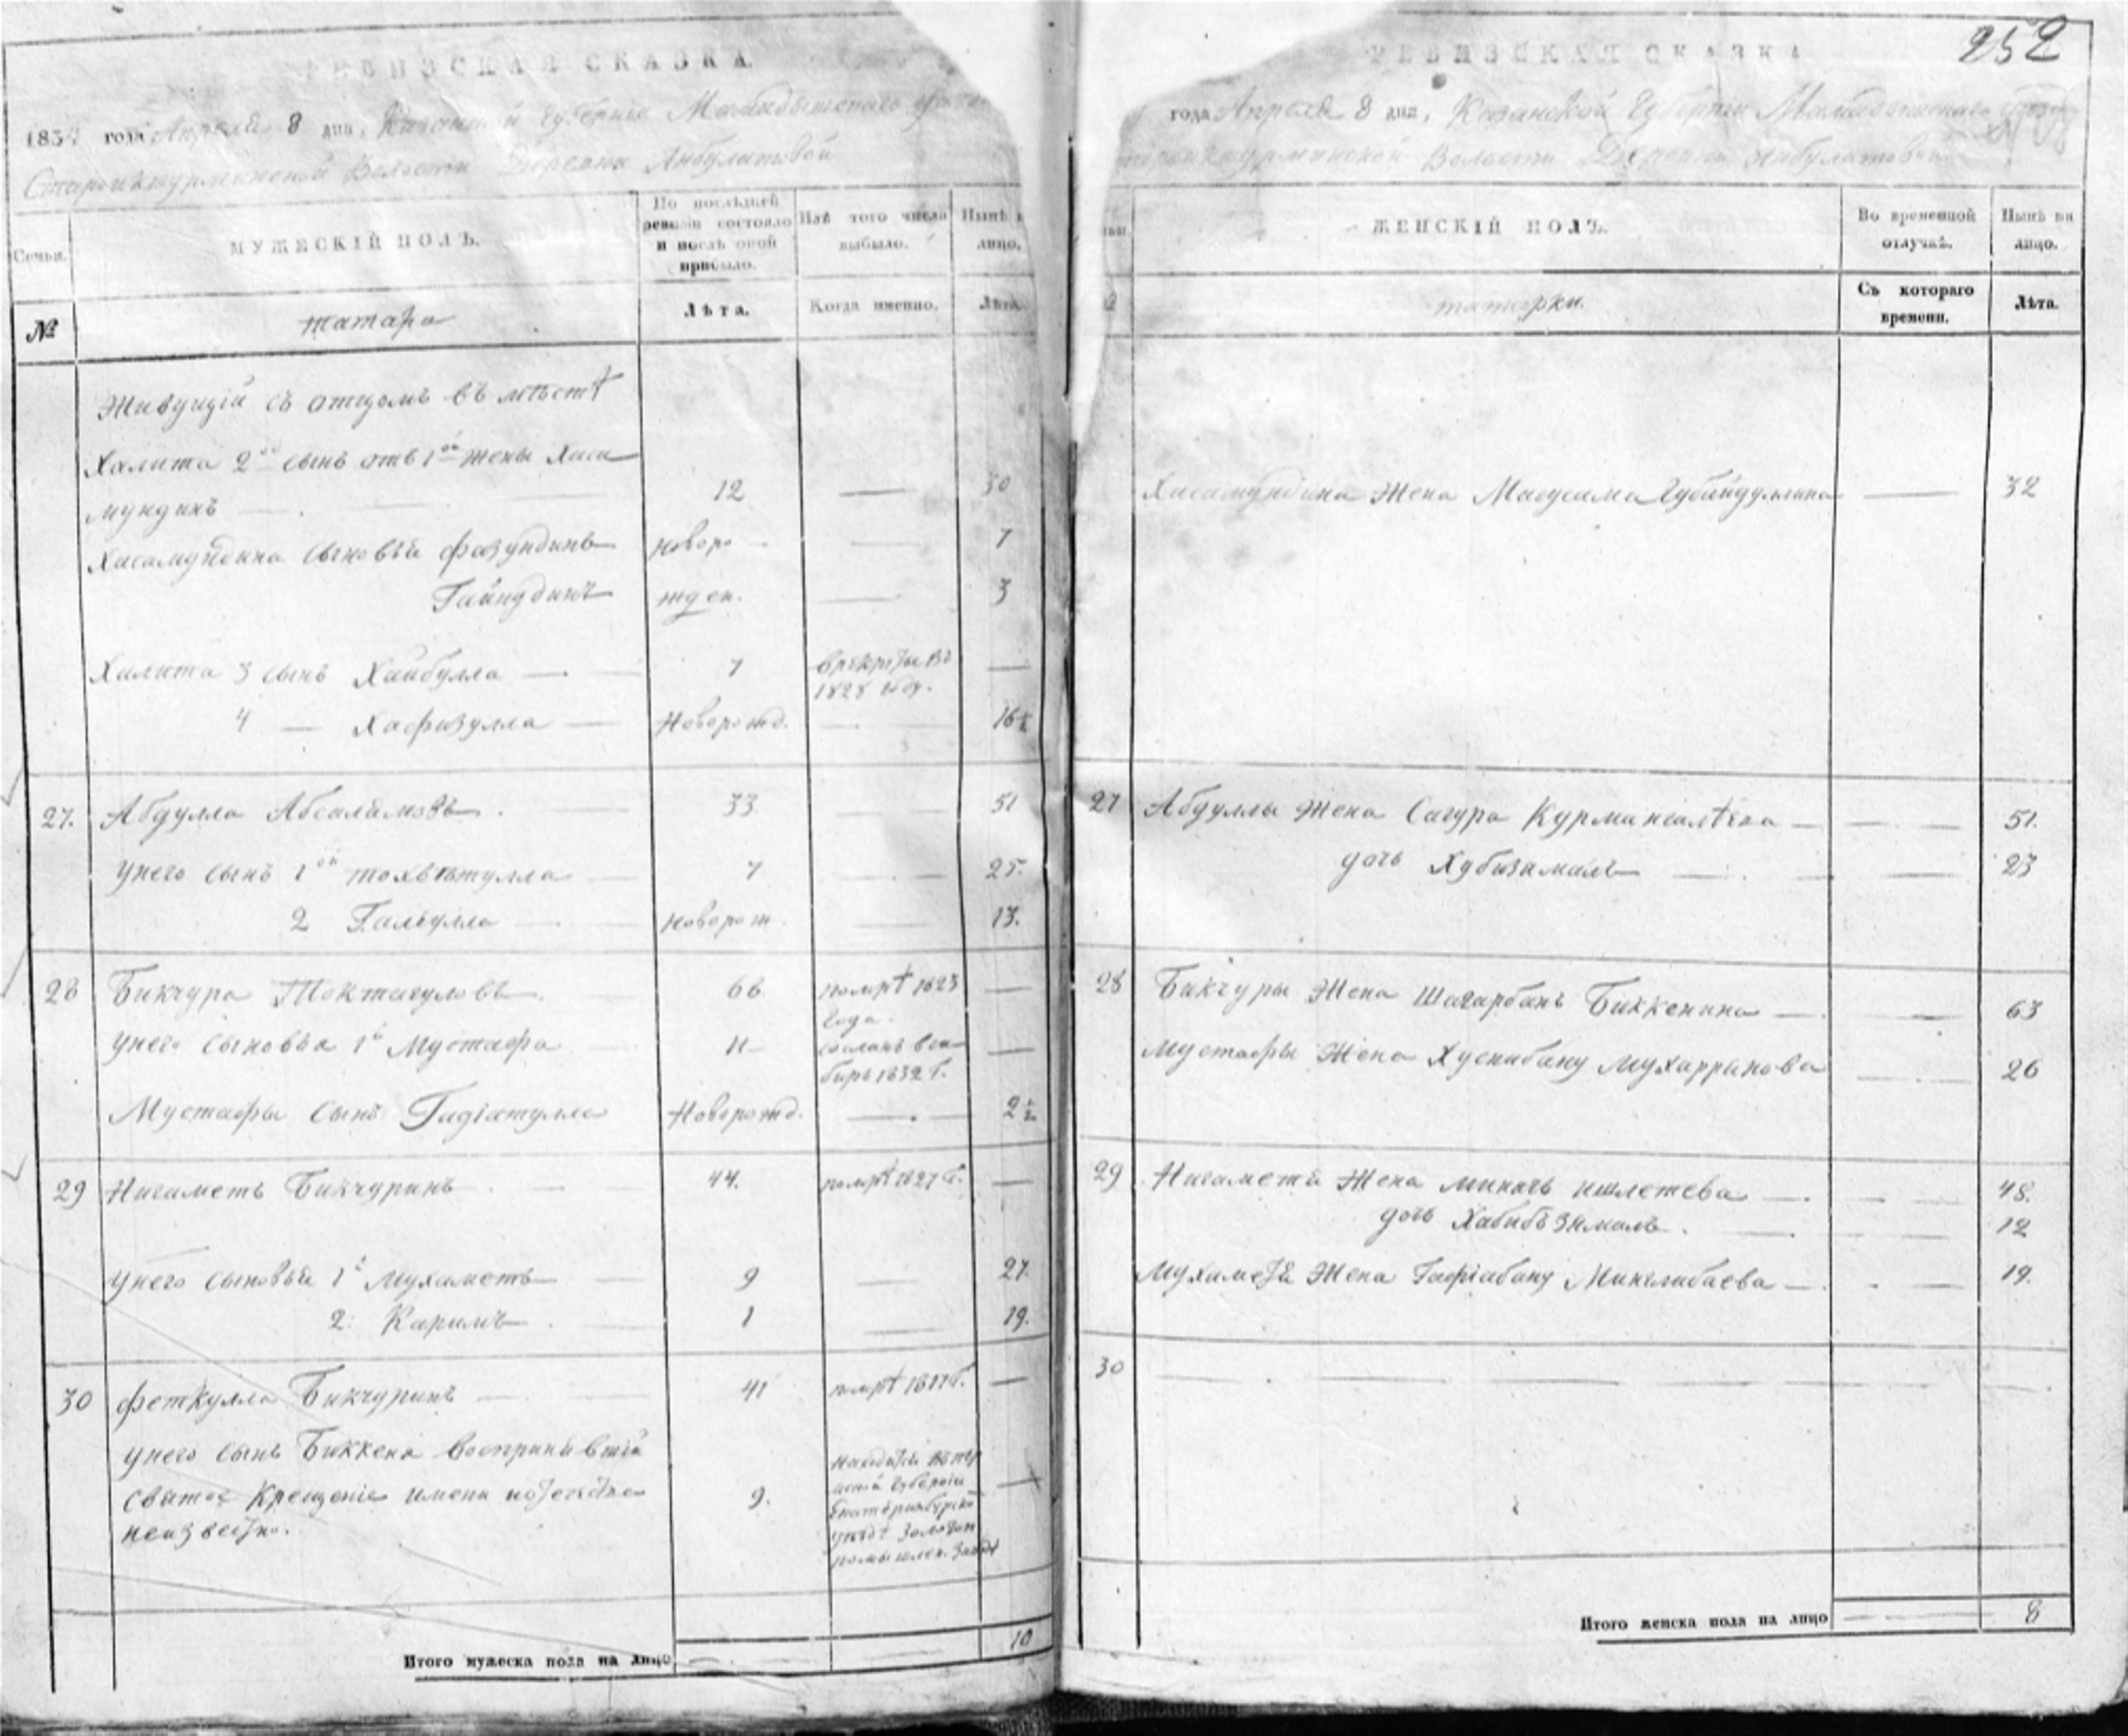 252
РЕВИЗСКАЯ СКАЗКА.
1834 года Апреля 8 дня, Казанской Губернiи Мамадышскаго
Волости Деревни Янбулатовой
Семьи.
МУЖЕСКIЙ ПОЛЪ.
По последней ревизiи состояло и послѣ оной прибыло.
Изъ того числа выбыло.
Нынѣ
лицо.
№
татара
Лѣта.
Когда именно.
Лѣта.
Живущiй съ отцомъ въ мѣстѣ
Халита 2ой сынъ отъ 1ой жены Хиса
мундинъ 12 — 30
Хисамундина сыновья Фазундинъ новоро — 7
Гайнудинъ жден. — 3
Халита 3 сынъ Хайбулла — 7 в рекруты въ —
1828 году.
4 — Хафизулла — Новорожд. — 16½
27. Абдулла Абсалямовъ. 33 — 51
у него сынъ 1ой Тохвѣтулла 7 — 25.
2 Галеулла — новорож. — 13.
28 Бикчура Токтагуловъ. 66 помрѣ 1823 —
года.
у него сыновья 1й Мустафа 11 сосланъ в си —
бирь 1832 г.
Мустафы сынъ Гадiатулла Новорожд. — 2½
29 Нигаметъ Бикчуринъ. 44. помрѣ 1827 г. —
у него сыновья 1й Мухаметъ 9 — 27.
2: Каримъ. 1 — 19.
30 Феткулла Бикчуринъ 41 помрѣ г. —
у него сынъ Биккеня воспринявшiй
святое Крещенiе имени и отечества 9. —
неизвестно.
находится въ пер
мской губернiи
Екатеринбургско
уѣзде золотоп
ромышлен. заводѣ
Итого мужеска пола на лицо 10
РЕВИЗСКАЯ СКАЗКА
года Апреля 8 дня, Казанской Губернiи Мамадышскаго
Волости Деревни Янбулатовой
ЖЕНСКIЙ ПОЛЪ.
Во временной отлучкѣ.
Нынѣ на лицо.
татарки.
Съ котораго времени.
Лѣта.
Хисамундина жена Магусама Губайдуллина — 32
27 Абдуллы жена Сагура Курмангалѣева — 51.
дочь Хубизямалъ — 23
28 Бикчуры жена Шагарбанъ Биккенина — 63
Мустафы жена Хуснибану Мухаррямова — 26
29 Нигаметя жена Ишметева — 48.
дочь Хабибъзямалъ. — 12
Мухаметя жена Гафiабану Минглибаева — 19.
30 — — — —
Итого женска пола на лицо 8